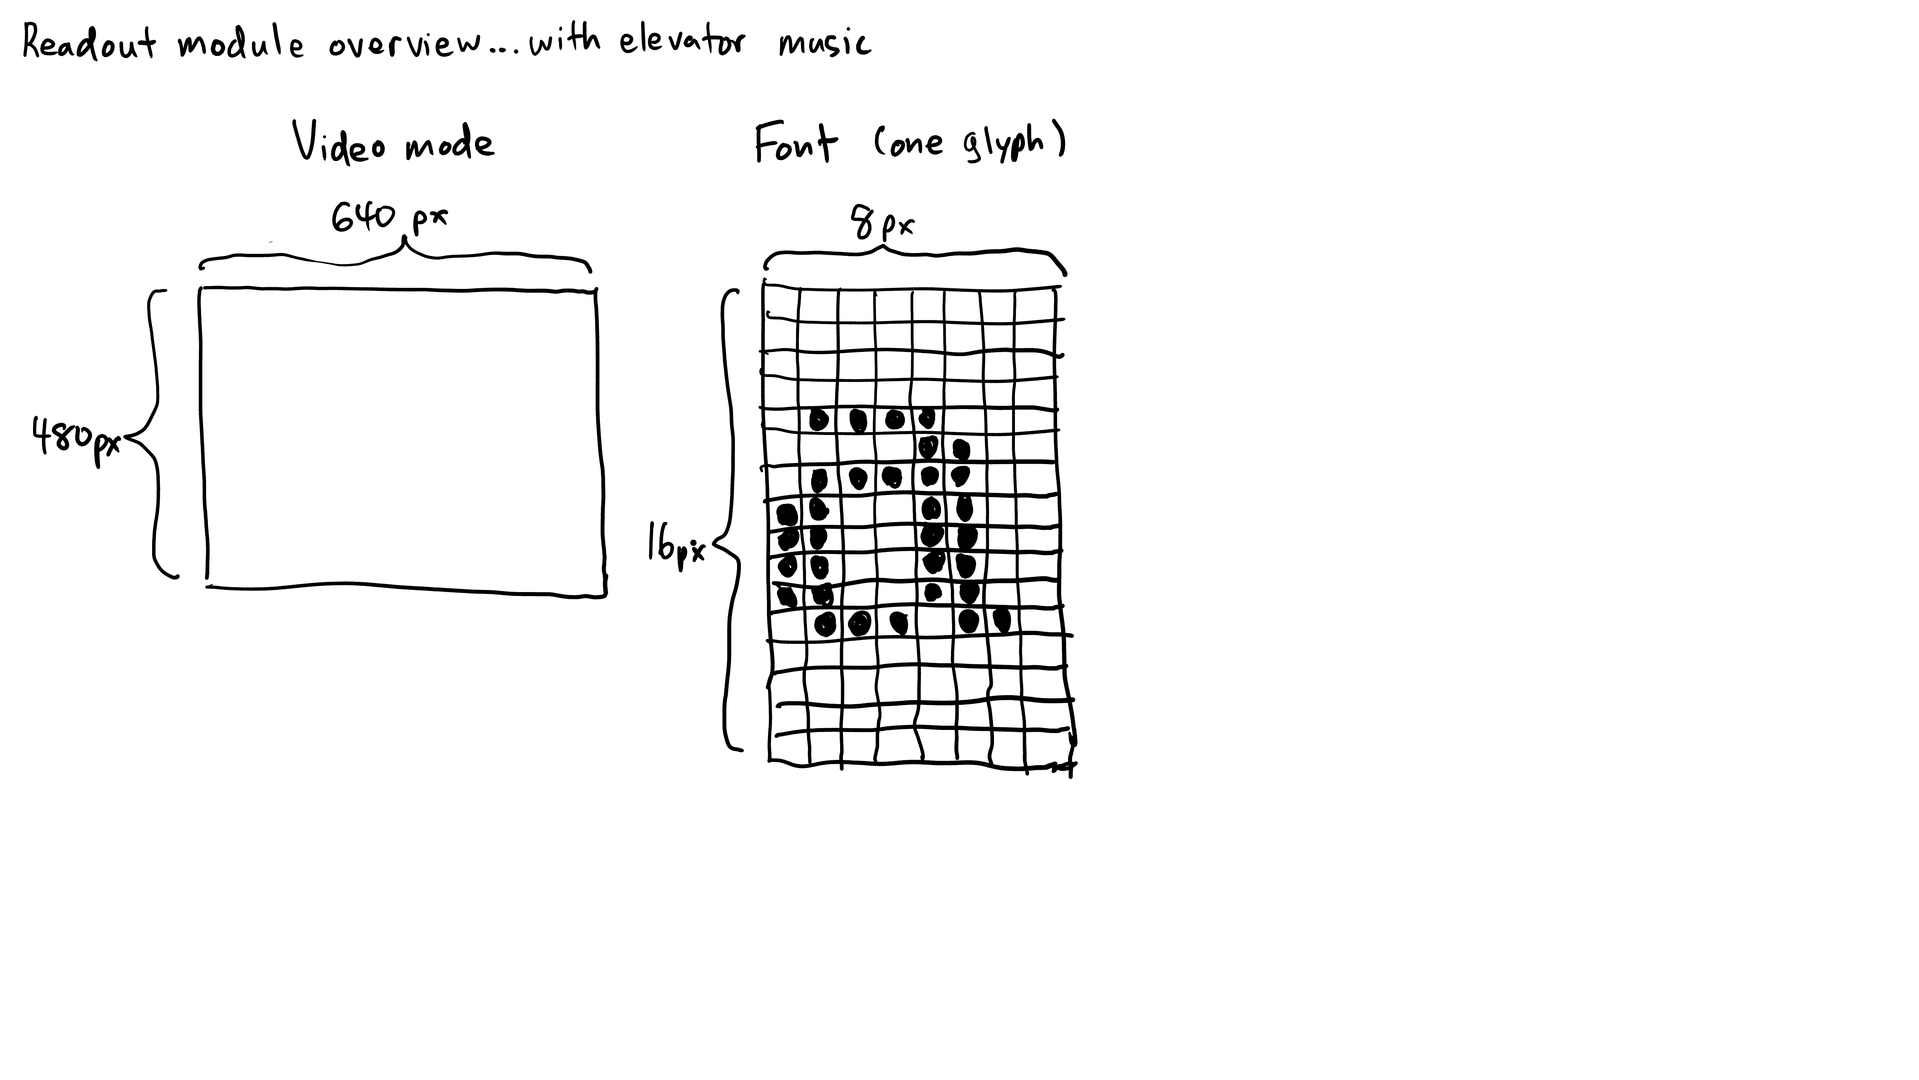 Readout module overview...with elevator music
Video mode
640 px
480px
Font (one glyph)
8px
16px